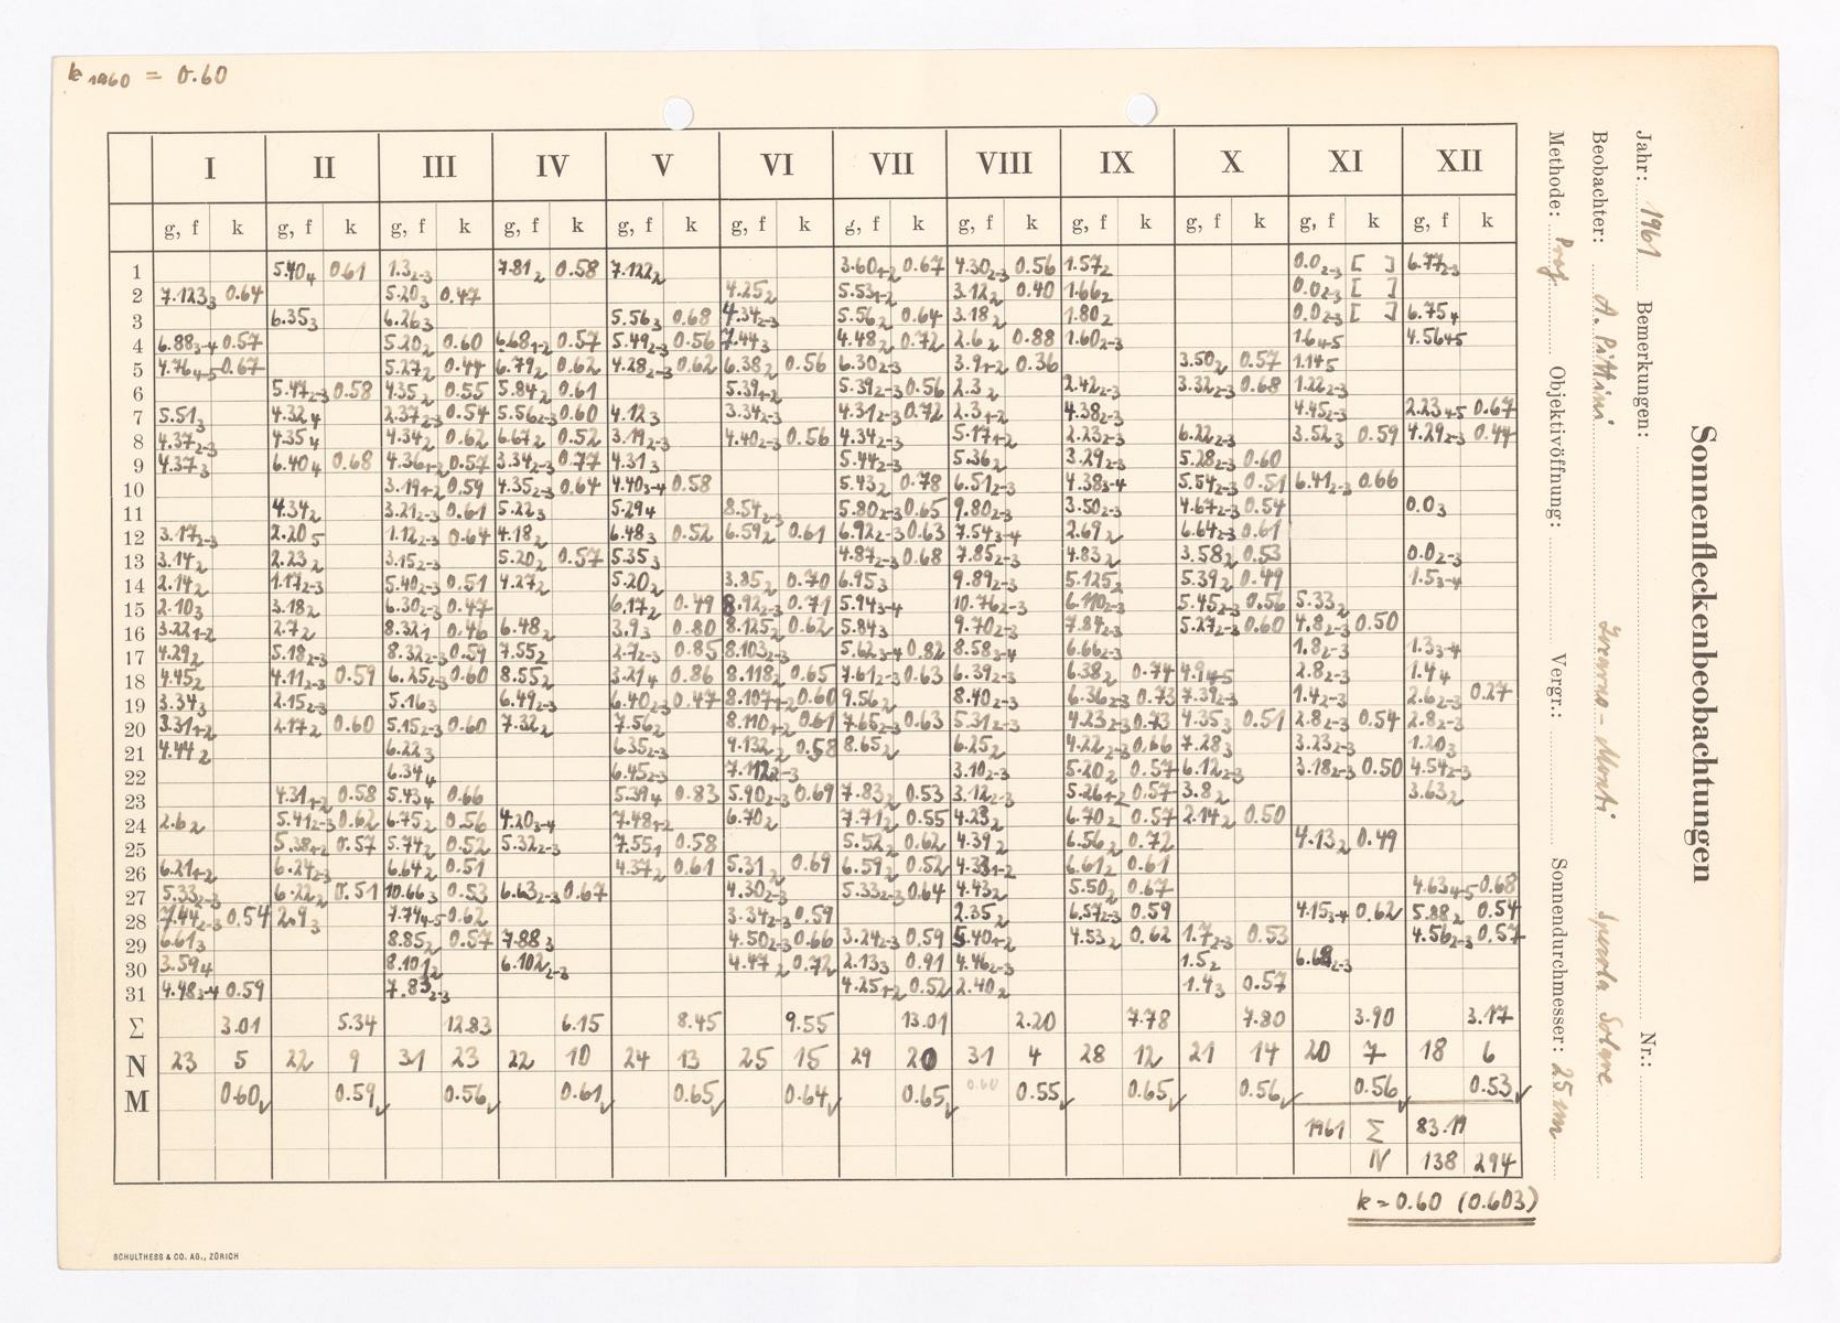 k 1960 = 0.60
Sonnenfleckenbeobachtungen
Jahr: 1961 Bemerkungen: Nr.:
Beobachter: A. Pittini Locarno-Monti Specola Solare
Methode: Proj. Objektivöffnung: Vergr.: Sonnendurchmesser: 25 cm
I II III IV V VI VII VIII IX X XI XII
g, f k g, f k g, f k g, f k g, f k g, f k g, f k g, f k g, f k g, f k g, f k g, f k
1 5.40₄ 0.61 1.3₂₋₃ 7.81₂ 0.58 7.122₂ 3.60₁₊₂ 0.67 4.30₂₋₃ 0.56 1.57₂ 0.0₂₋₃ [ ] 6.77₂₋₃
2 7.123₃ 0.64 5.20₃ 0.47 4.25₂ 5.53₁₋₂ 3.12₂ 0.40 1.66₂ 0.0₂₋₃ [ ]
3 6.35₃ 6.26₃ 5.56₃ 0.68 4.34₂₋₃ 5.56₂ 0.64 3.18₂ 1.80₂ 0.0₂₋₃ [ ] 6.75₄
4 6.88₃₋₄ 0.57 5.20₂ 0.60 6.68₁₋₂ 0.57 5.49₂₋₃ 0.56 7.44₃ 4.48₂ 0.72 2.6₂ 0.88 1.60₂₋₃ 1.6₄₋₅ 4.56₄₋₅
5 4.76₄₋₅ 0.67 5.27₂ 0.44 6.79₂ 0.62 4.28₂₋₃ 0.62 6.38₂ 0.56 6.30₂₋₃ 3.9₁₊₂ 0.36 3.50₂ 0.57 1.14₅
6 5.47₂₋₃ 0.58 4.35₂ 0.55 5.84₂ 0.61 5.39₁₊₂ 5.39₂₋₃ 0.56 2.3₂ 2.42₂₋₃ 3.32₂₋₃ 0.68 1.22₂₋₃
7 5.51₃ 4.32₄ 2.37₂₋₃ 0.54 5.56₂₋₃ 0.60 4.12₃ 3.34₂₋₃ 4.31₂₋₃ 0.72 2.3₁₊₂ 4.38₂₋₃ 4.45₂₋₃ 2.23₄₋₅ 0.67
8 4.37₂₋₃ 4.35₄ 4.34₂ 0.62 6.67₂ 0.52 3.19₂₋₃ 4.40₂₋₃ 0.56 4.34₂₋₃ 5.17₁₊₂ 2.23₂₋₃ 6.22₂₋₃ 3.52₃ 0.59 4.29₂₋₃ 0.44
9 4.37₃ 6.40₄ 0.68 4.36₁₊₂ 0.57 3.34₂₋₃ 0.77 4.31₃ 5.44₂₋₃ 5.36₂ 3.29₂₋₃ 5.28₂₋₃ 0.60
10 3.19₁₊₂ 0.59 4.35₂₋₃ 0.64 4.40₃₋₄ 0.58 5.43₂ 0.78 6.51₂₋₃ 4.38₃₋₄ 5.54₂₋₃ 0.51 6.41₂₋₃ 0.66
11 4.34₂ 3.21₂₋₃ 0.61 5.22₃ 5.29₄ 8.54₂₋₃ 5.80₂₋₃ 0.65 9.80₂₋₃ 3.50₂₋₃ 4.67₂₋₃ 0.54 0.0₃
12 3.17₂₋₃ 2.20₅ 1.12₂₋₃ 0.64 4.18₂ 6.48₃ 0.52 6.59₂ 0.61 6.92₂₋₃ 0.63 7.54₃₋₄ 2.69₂ 6.64₂₋₃ 0.61
13 3.14₂ 2.23₂ 3.15₂₋₃ 5.20₂ 0.57 5.35₃ 4.87₂₋₃ 0.68 7.85₂₋₃ 4.83₂ 3.58₂ 0.53 0.0₂₋₃
14 2.14₂ 1.17₂₋₃ 5.40₂₋₃ 0.51 4.27₂ 5.20₂ 3.85₂ 0.70 6.95₃ 9.89₂₋₃ 5.125₂ 5.39₂ 0.49 1.5₃₋₄
15 2.10₃ 3.18₂ 6.30₂₋₃ 0.47 6.17₂ 0.49 8.92₂₋₃ 0.71 5.94₃₋₄ 10.76₂₋₃ 6.110₂₋₃ 5.45₂₋₃ 0.56 5.33₂
16 3.22₁₋₂ 2.7₂ 8.32₁ 0.46 6.48₂ 3.9₃ 0.80 8.125₂ 0.62 5.84₃ 9.70₂₋₃ 7.84₂₋₃ 5.27₂₋₃ 0.60 4.8₂₋₃ 0.50
17 4.29₂ 5.18₂₋₃ 8.32₂₋₃ 0.59 7.55₂ 2.7₂₋₃ 0.85 8.103₂₋₃ 5.62₃₋₄ 0.82 8.58₃₋₄ 6.66₂₋₃ 1.8₂₋₃ 1.3₃₋₄
18 4.45₂ 4.11₂₋₃ 0.59 6.25₂₋₃ 0.60 8.55₂ 3.21₄ 0.86 8.118₂ 0.65 7.61₂₋₃ 0.63 6.39₂₋₃ 6.38₂ 0.74 4.9₄₋₅ 2.8₂₋₃ 1.4₄
19 3.34₃ 2.15₂₋₃ 5.16₃ 6.49₂₋₃ 6.40₂₋₃ 0.47 8.107₁₊₂ 0.60 9.56₂ 8.40₂₋₃ 6.36₂₋₃ 0.73 7.39₂₋₃ 1.4₂₋₃ 2.6₂₋₃ 0.27
20 3.31₁₊₂ 2.17₂ 0.60 5.15₂₋₃ 0.60 7.32₂ 7.56₂ 8.110₁₊₂ 0.61 7.65₂₋₃ 0.63 5.31₂₋₃ 4.23₂₋₃ 0.73 4.35₃ 0.51 2.8₂₋₃ 0.54 2.8₂₋₃
21 4.44₂ 6.22₃ 6.35₂₋₃ 9.132₂ 0.58 8.65₂ 6.25₂ 4.22₂₋₃ 0.66 7.28₃ 3.23₂₋₃ 1.20₃
22 6.34₄ 6.45₂₋₃ 7.112₂₋₃ 3.10₂₋₃ 5.20₂ 0.57 6.12₂₋₃ 3.18₂₋₃ 0.50 4.54₂₋₃
23 4.31₁₊₂ 0.58 5.43₄ 0.66 5.39₄ 0.83 5.90₂₋₃ 0.69 7.83₂ 0.53 3.12₂₋₃ 5.26₁₊₂ 0.57 3.8₂ 3.63₂
24 2.6₂ 5.41₂₋₃ 0.62 6.75₂ 0.56 4.20₃₋₄ 7.48₁₊₂ 6.70₂ 7.71₂ 0.55 4.23₂ 6.70₂ 0.57 2.14₂ 0.50
25 5.38₁₊₂ 0.57 5.74₂ 0.52 5.32₂₋₃ 7.55₁ 0.58 5.52₂ 0.62 4.39₂ 6.56₂ 0.72 4.13₂ 0.49
26 6.21₁₊₂ 6.24₂₋₃ 6.64₂ 0.51 4.37₂ 0.61 5.31₂ 0.69 6.59₂ 0.52 4.33₁₋₂ 6.61₂ 0.61
27 5.33₂₋₃ 6.22₂ 0.51 10.66₃ 0.53 6.63₂₋₃ 0.67 4.30₂₋₃ 5.33₂₋₃ 0.64 4.43₂ 5.50₂ 0.67 4.63₄₋₅ 0.68
28 7.44₂₋₃ 0.54 2.9₃ 7.74₄₋₅ 0.62 3.34₂₋₃ 0.59 2.35₂ 6.57₂₋₃ 0.59 4.15₃₋₄ 0.62 5.88₂ 0.54
29 6.61₃ 8.85₂ 0.57 7.88₃ 4.50₂₋₃ 0.66 3.24₂₋₃ 0.59 5.40₁₊₂ 4.53₂ 0.62 1.7₂₋₃ 0.53 4.56₂₋₃ 0.57
30 3.59₄ 8.101₂ 6.102₂₋₃ 4.47₂ 0.72 2.13₃ 0.91 4.46₂₋₃ 1.5₂ 6.68₂₋₃
31 4.48₃₋₄ 0.59 7.83₂₋₃ 4.25₁₊₂ 0.52 2.40₂ 1.4₃ 0.57
Σ 3.01 5.34 12.83 6.15 8.45 9.55 13.01 2.20 7.78 7.80 3.90 3.17
N 23 5 22 9 31 23 22 10 24 13 25 15 29 20 31 4 28 12 21 14 20 7 18 6
M 0.60 0.59 0.56 0.61 0.65 0.64 0.65 0.60 0.55 0.65 0.56 0.56 0.53
1961 Σ 83.19
N 138 294
k = 0.60 (0.603)
SCHULTHESS & CO. AG., ZÜRICH